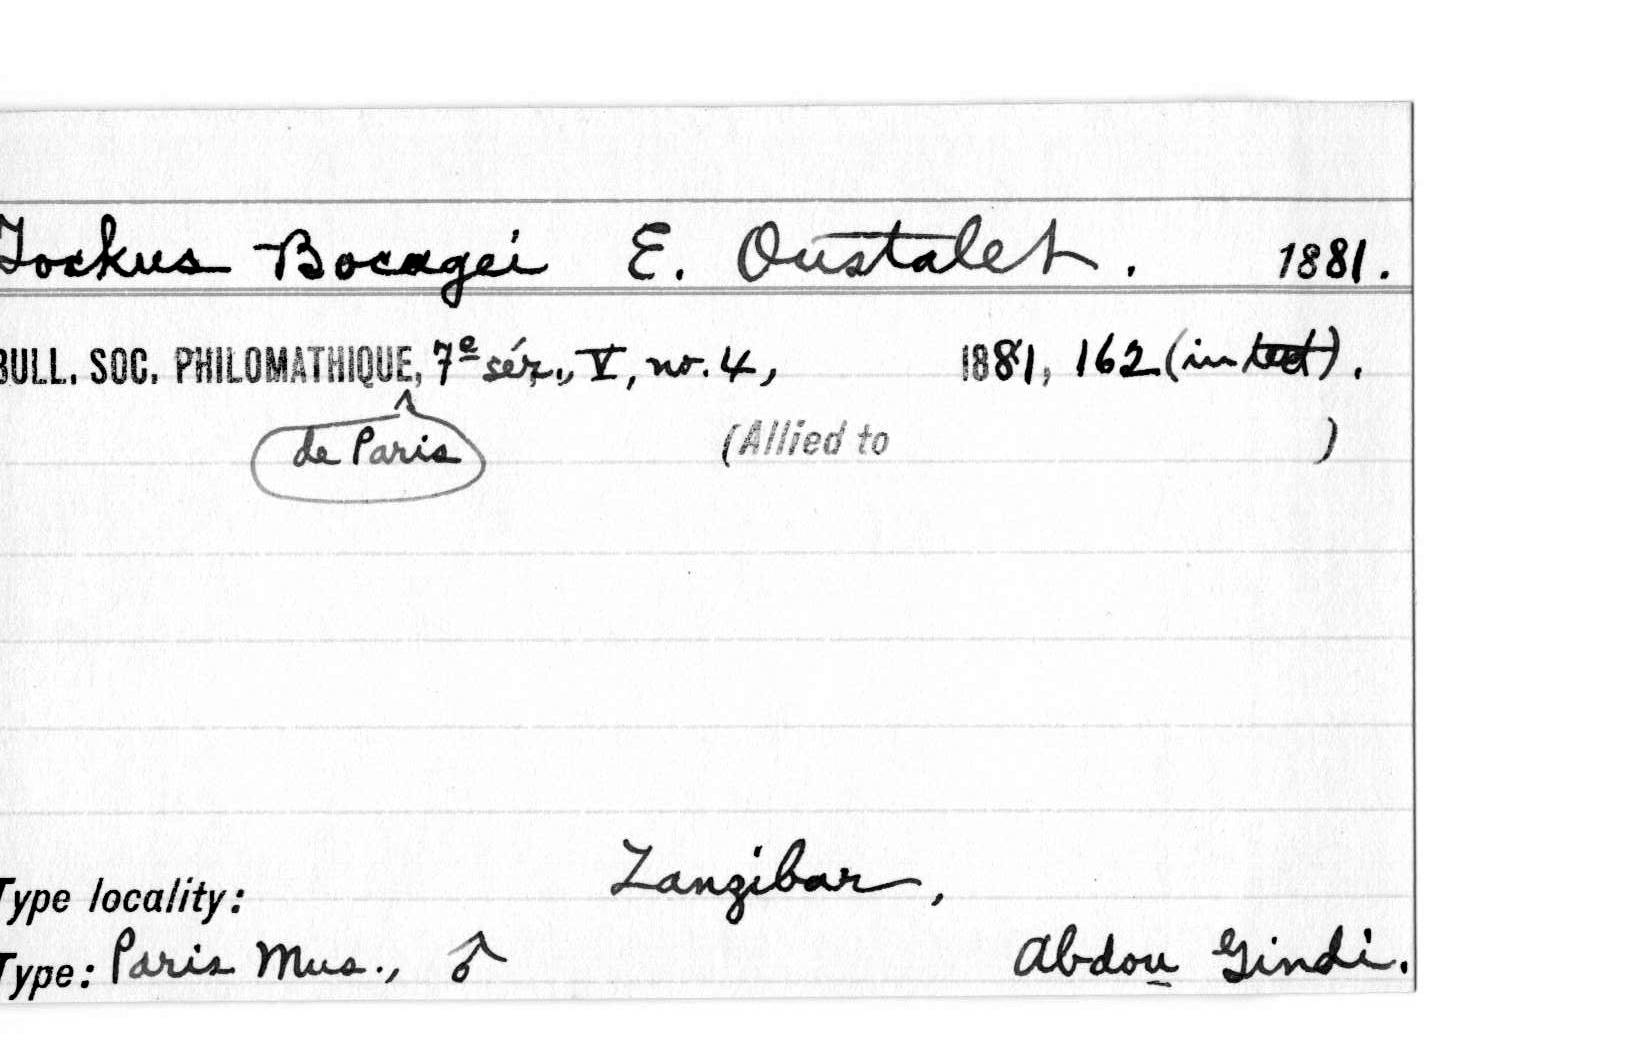 Tockus Bocagei E. Oustalet. 1881.
BULL. SOC. PHILOMATHIQUE, 7e sér., V, no. 4, 1881, 162 (in text).
de Paris (Allied to )
Type locality: Zanzibar,
Type: Paris Mus., ♂ Abdou Gindi.